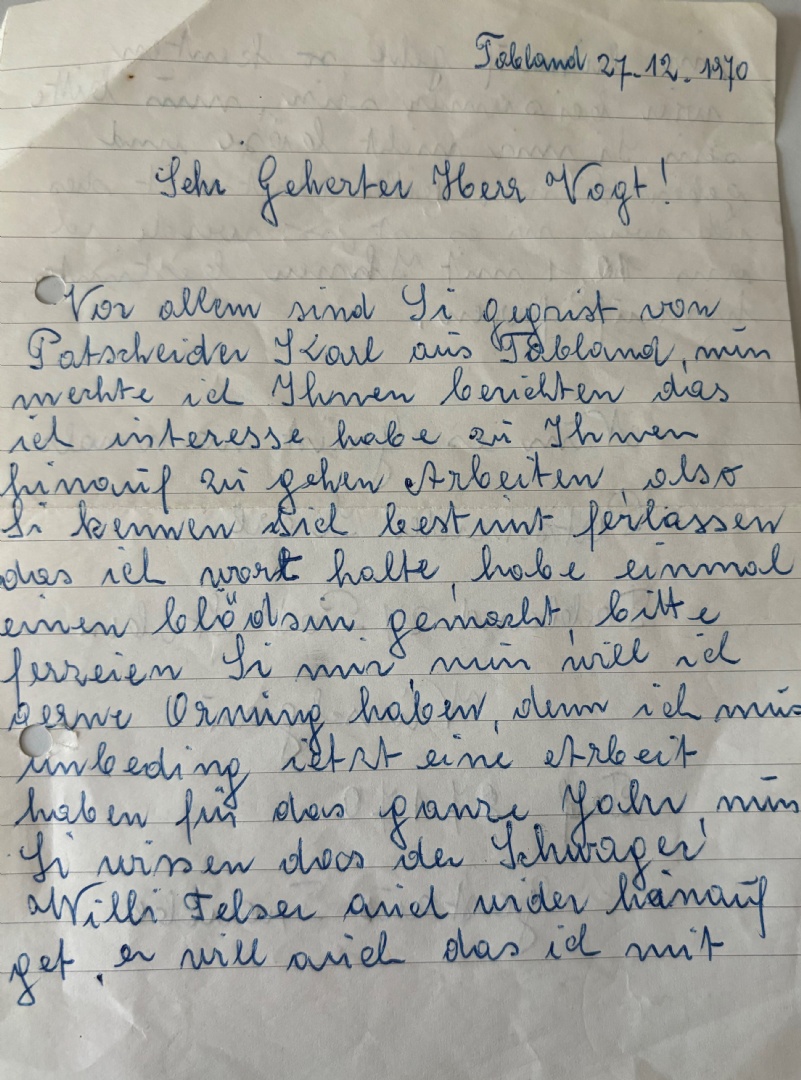 Tabland 27.12.1970
Sehr Geherter Herr Vogt!
Vor allem sind Si gegrist von
Patscheider Karl aus Tabland, nun
mechte ich Ihnen berichten das
ich interesse habe zu Ihnen
hinauf zu gehen Arbeiten, also
Si kennen sich bestimt ferlassen
das ich wort halte, habe einmal
einen blödsin gemacht, bitte
ferzeien Si mir, nun will ich
gerne Ornung haben, denn ich mus
unbeding ietzt eine Arbeit
haben für das ganze Jahr, nun
Si wissen das der Schwager
Willi Telser auch wider hinauf
get, er will auch das ich mit